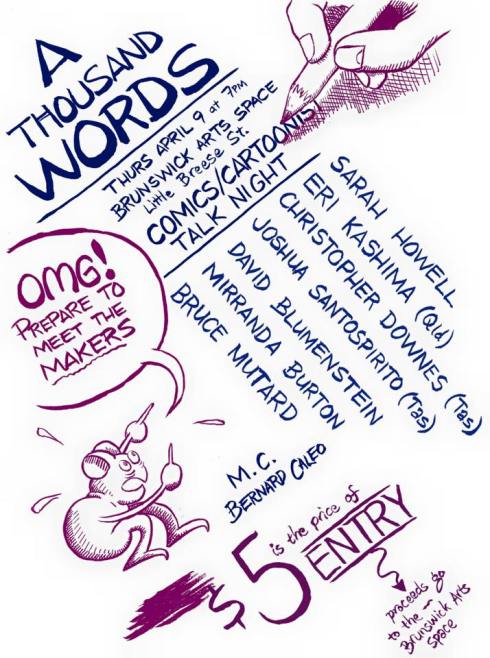 A
THOUSAND
WORDS
THURS APRIL 9 at 7PM
BRUNSWICK ARTS SPACE
Little Breese St.
COMICS/CARTOONIST
TALK NIGHT
SARAH HOWELL
ERI KASHIMA (Qld)
CHRISTOPHER DOWNES (Tas)
JOSHUA SANTOSPIRITO (Tas)
DAVID BLUMENSTEIN
MIRRANDA BURTON
BRUCE MUTARD
OMG!
PREPARE TO
MEET THE
MAKERS
M.C.
BERNARD CALEO
$5 is the price of
ENTRY
proceeds go
to the
Brunswick Arts
Space